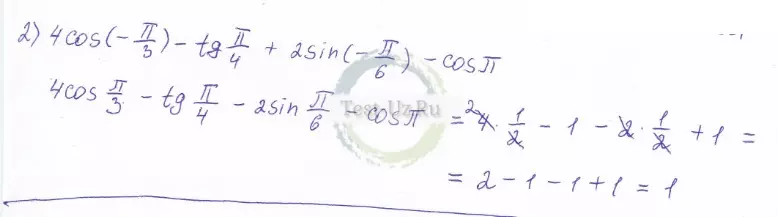 2) 4cos(-π/3) - tg π/4 + 2sin(-π/6) - cosπ
4cos π/3 - tg π/4 - 2sin π/6 - cosπ = 4 · 1/2 - 1 - 2 · 1/2 + 1 =
Test-Uz.Ru
= 2 - 1 - 1 + 1 = 1